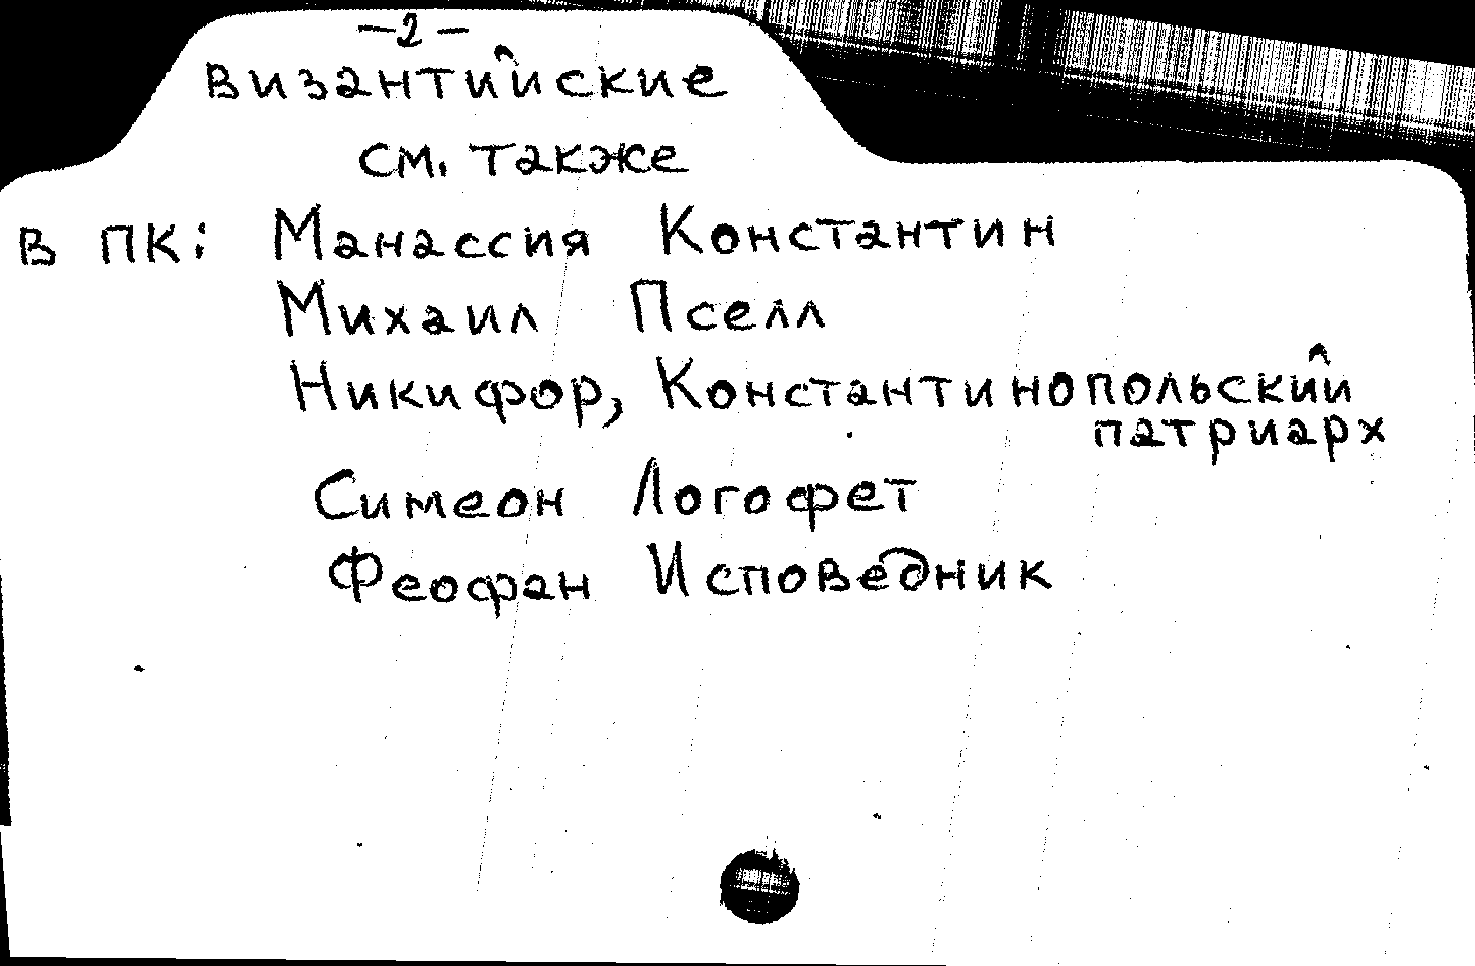 —2—
византийские
см. также
в ПК: Манассия Константин
Михаил Пселл
Никифор, Константинопольский
патриарх
Симеон Логофет
Феофан Исповедник